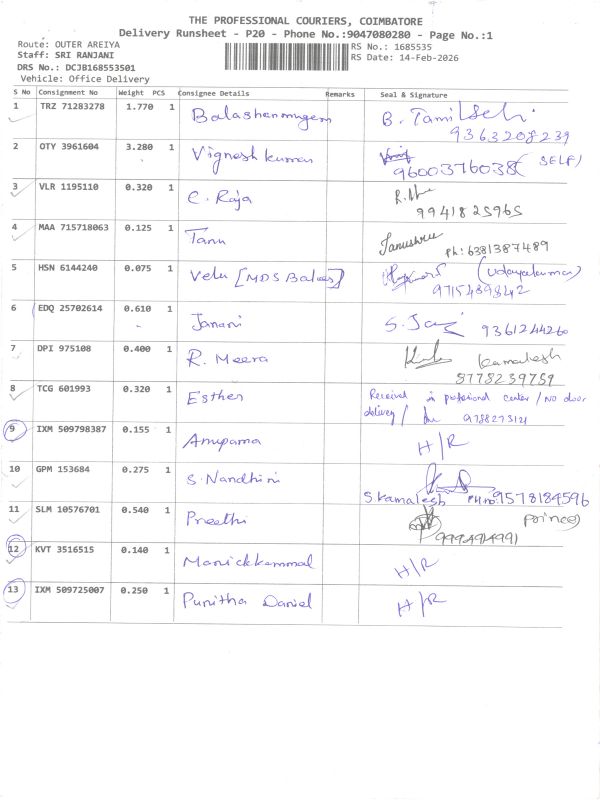 THE PROFESSIONAL COURIERS, COIMBATORE
Delivery Runsheet - P20 - Phone No.:9047080280 - Page No.:1
Route: OUTER AREIYA
RS No.: 1685535
Staff: SRI RANJANI
RS Date: 14-Feb-2026
DRS No.: DCJB168553501
Vehicle: Office Delivery
S No Consignment No Weight PCS Consignee Details Remarks Seal & Signature
1 TRZ 71283278 1.770 1 Balashanmugam B. Tamil Selvi
9363208239
2 OTY 3961604 3.280 1 Vignesh kumar (SELF)
9600376038
3 VLR 1195110 0.320 1 C. Raja
9941825965
4 MAA 715718063 0.125 1 Tanu Tanushree
Ph: 6381387489
5 HSN 6144240 0.075 1 Velu [MDS Balaes] (Udayakumar)
9715489842
6 EDQ 25702614 0.610 1 Janani S. 9361244260
7 DPI 975108 0.400 1 R. Meera Kamalesh
8778239759
8 TCG 601993 0.320 1 Esther Received in professional center / NO door
delivery / 9788273121
9 IXM 509798387 0.155 1 Anuparna H/R
10 GPM 153684 0.275 1 S. Nandhini
S. Kamalesh PH no: 9578184596
11 SLM 10576701 0.540 1 Preethi (prince)
12 KVT 3516515 0.140 1 Manickkammal H/R
13 IXM 509725007 0.250 1 Punitha Daniel H/R